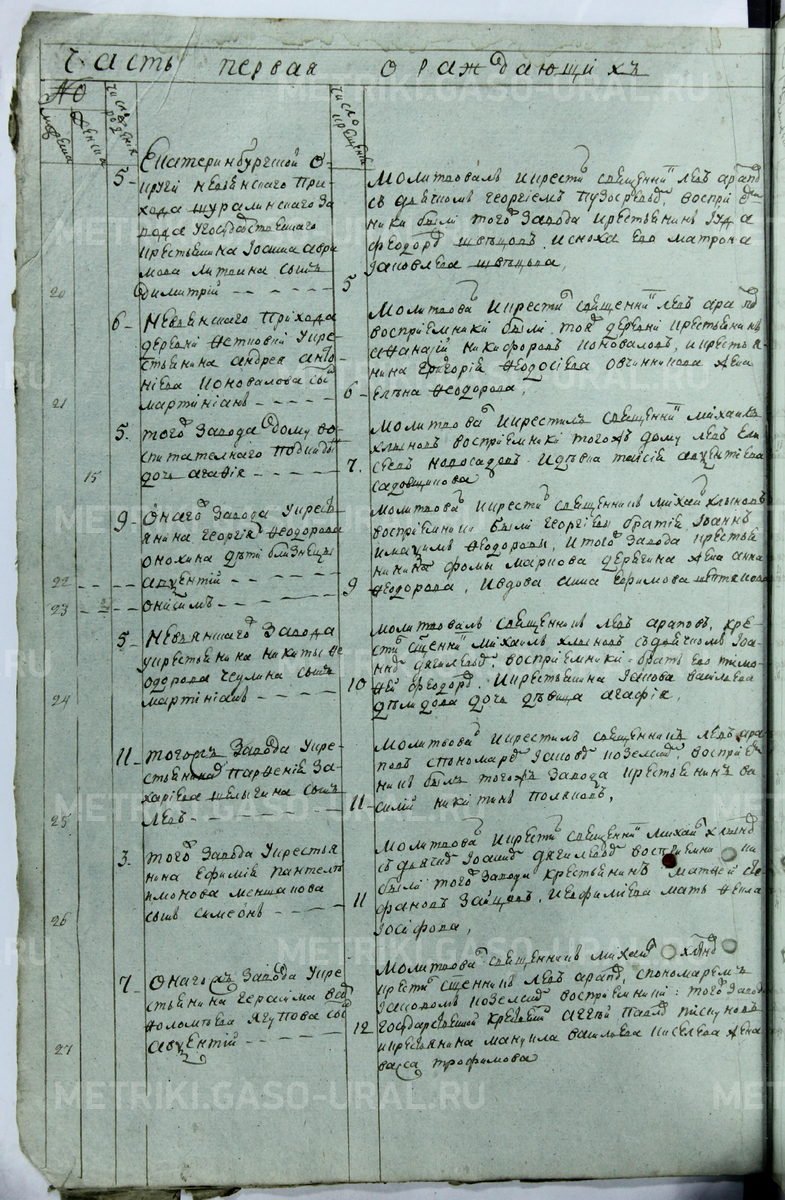 Часть первая о раждающихъ
Число рожденія
Число крещенія
Мужеска
Женска
Екатеринбургской о-
5 круги Невьянскаго при-
хода Шуралинскаго за
вода Государственнаго
крестьянина Іоанна Авра
мова Литвина сынъ
20 Димитрій
Молитвовалъ и крестилъ священникъ Левъ Араповъ
съ дьячкомъ Георгіемъ воспріем
ники были того завода крестьянинъ
Феодоръ Швецовъ и сноха его Матрона
5 Іаковлева Швецова,
6 Невьянскаго прихода
деревни у кре-
стьянина Андрея Анто
ніева Коновалова сынъ
21 Мартиніанъ
Молитвовалъ и крестилъ священникъ Левъ Араповъ
воспріемники были той деревни крестьянинъ
Никифоровъ Коноваловъ, и крестья
нина Григорія Феодосіева Овчинникова жена
6 Елена Феодорова,
5. того завода дому во
спитателнаго подкиды
15 дочь Агафія
Молитвовалъ и крестилъ священникъ Михаилъ
Хлыновъ воспріемники тогожъ дому Левъ Ели
7. сеевъ и девка Таисія Авксентіева
Садовщикова
9 Онаго завода у кресть
янина Георгія Феодорова
Онохина дети близнецы
22 Авксентій
23 Онисимъ
Молитвовалъ и крестилъ священникъ Михаилъ Хлыновъ
воспріемники были Георгіевы братія Іоаннъ
и Максимъ Феодоровы, и того завода крестья
нина Фомы Маркова жена Анна
9 Феодорова, и вдова Ефимова
5 Невьянскаго завода
у крестьянина Никиты Фе
одорова сынъ
24 Мартиніанъ
Молитвовалъ священникъ Левъ Араповъ, кре-
стилъ священникъ Михаилъ Хлыновъ съ дьячкомъ Іоа-
нномъ Дягилевымъ воспріемники братъ его Тимо-
10 фей Феодоровъ и крестьянина Іакова Васильева
Демидова дочь девица Агафія,
11 тогожъ завода у кре-
стьянина Парфенія За-
харіева Шелыгина сынъ
25 Левъ
Молитвовалъ и крестилъ священникъ Левъ Ара
повъ съ пономаремъ Іаковомъ воспріем
никъ былъ тогожъ завода крестьянинъ Ва
11 силій Никитинъ Поляковъ,
3. того завода у крестья
нина Ефимія Пантеле
имонова Меншакова
26 сынъ Симеонъ
Молитвовалъ и крестилъ священникъ Михаилъ Хлыновъ
съ дьячкомъ Іоанномъ Дягилевымъ воспріемники
были того завода крестьянинъ Матфей Сте
11 фановъ Зайцовъ, и Ефиміева мать Фекла
Іосифова,
7 Онагожъ завода у кре
стьянина Герасима Вар
фоломеева Ягупова сынъ
27 Авксентій
Молитвовалъ священникъ Михаилъ Хлыновъ
крестилъ священникъ Левъ Араповъ, с пономаремъ
Іаковомъ воспріемники: того завода
12 Государственный крестьянинъ Піскуновъ
и крестьянина Мануила Васильева Киселева жена
Васса Трофимова
METRIKI.GASO-URAL.RU